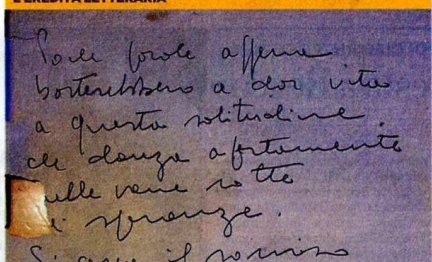 E EREDITÀ LETTERARIA
Poche parole appena
basterebbero a dar vita
a questa solitudine
che danza apertamente
sulle vane rotte
di speranze.
Si apre il sorriso